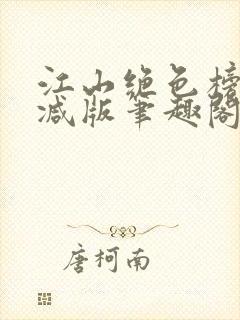 江山绝色榜
减版笔趣阁
唐柯南